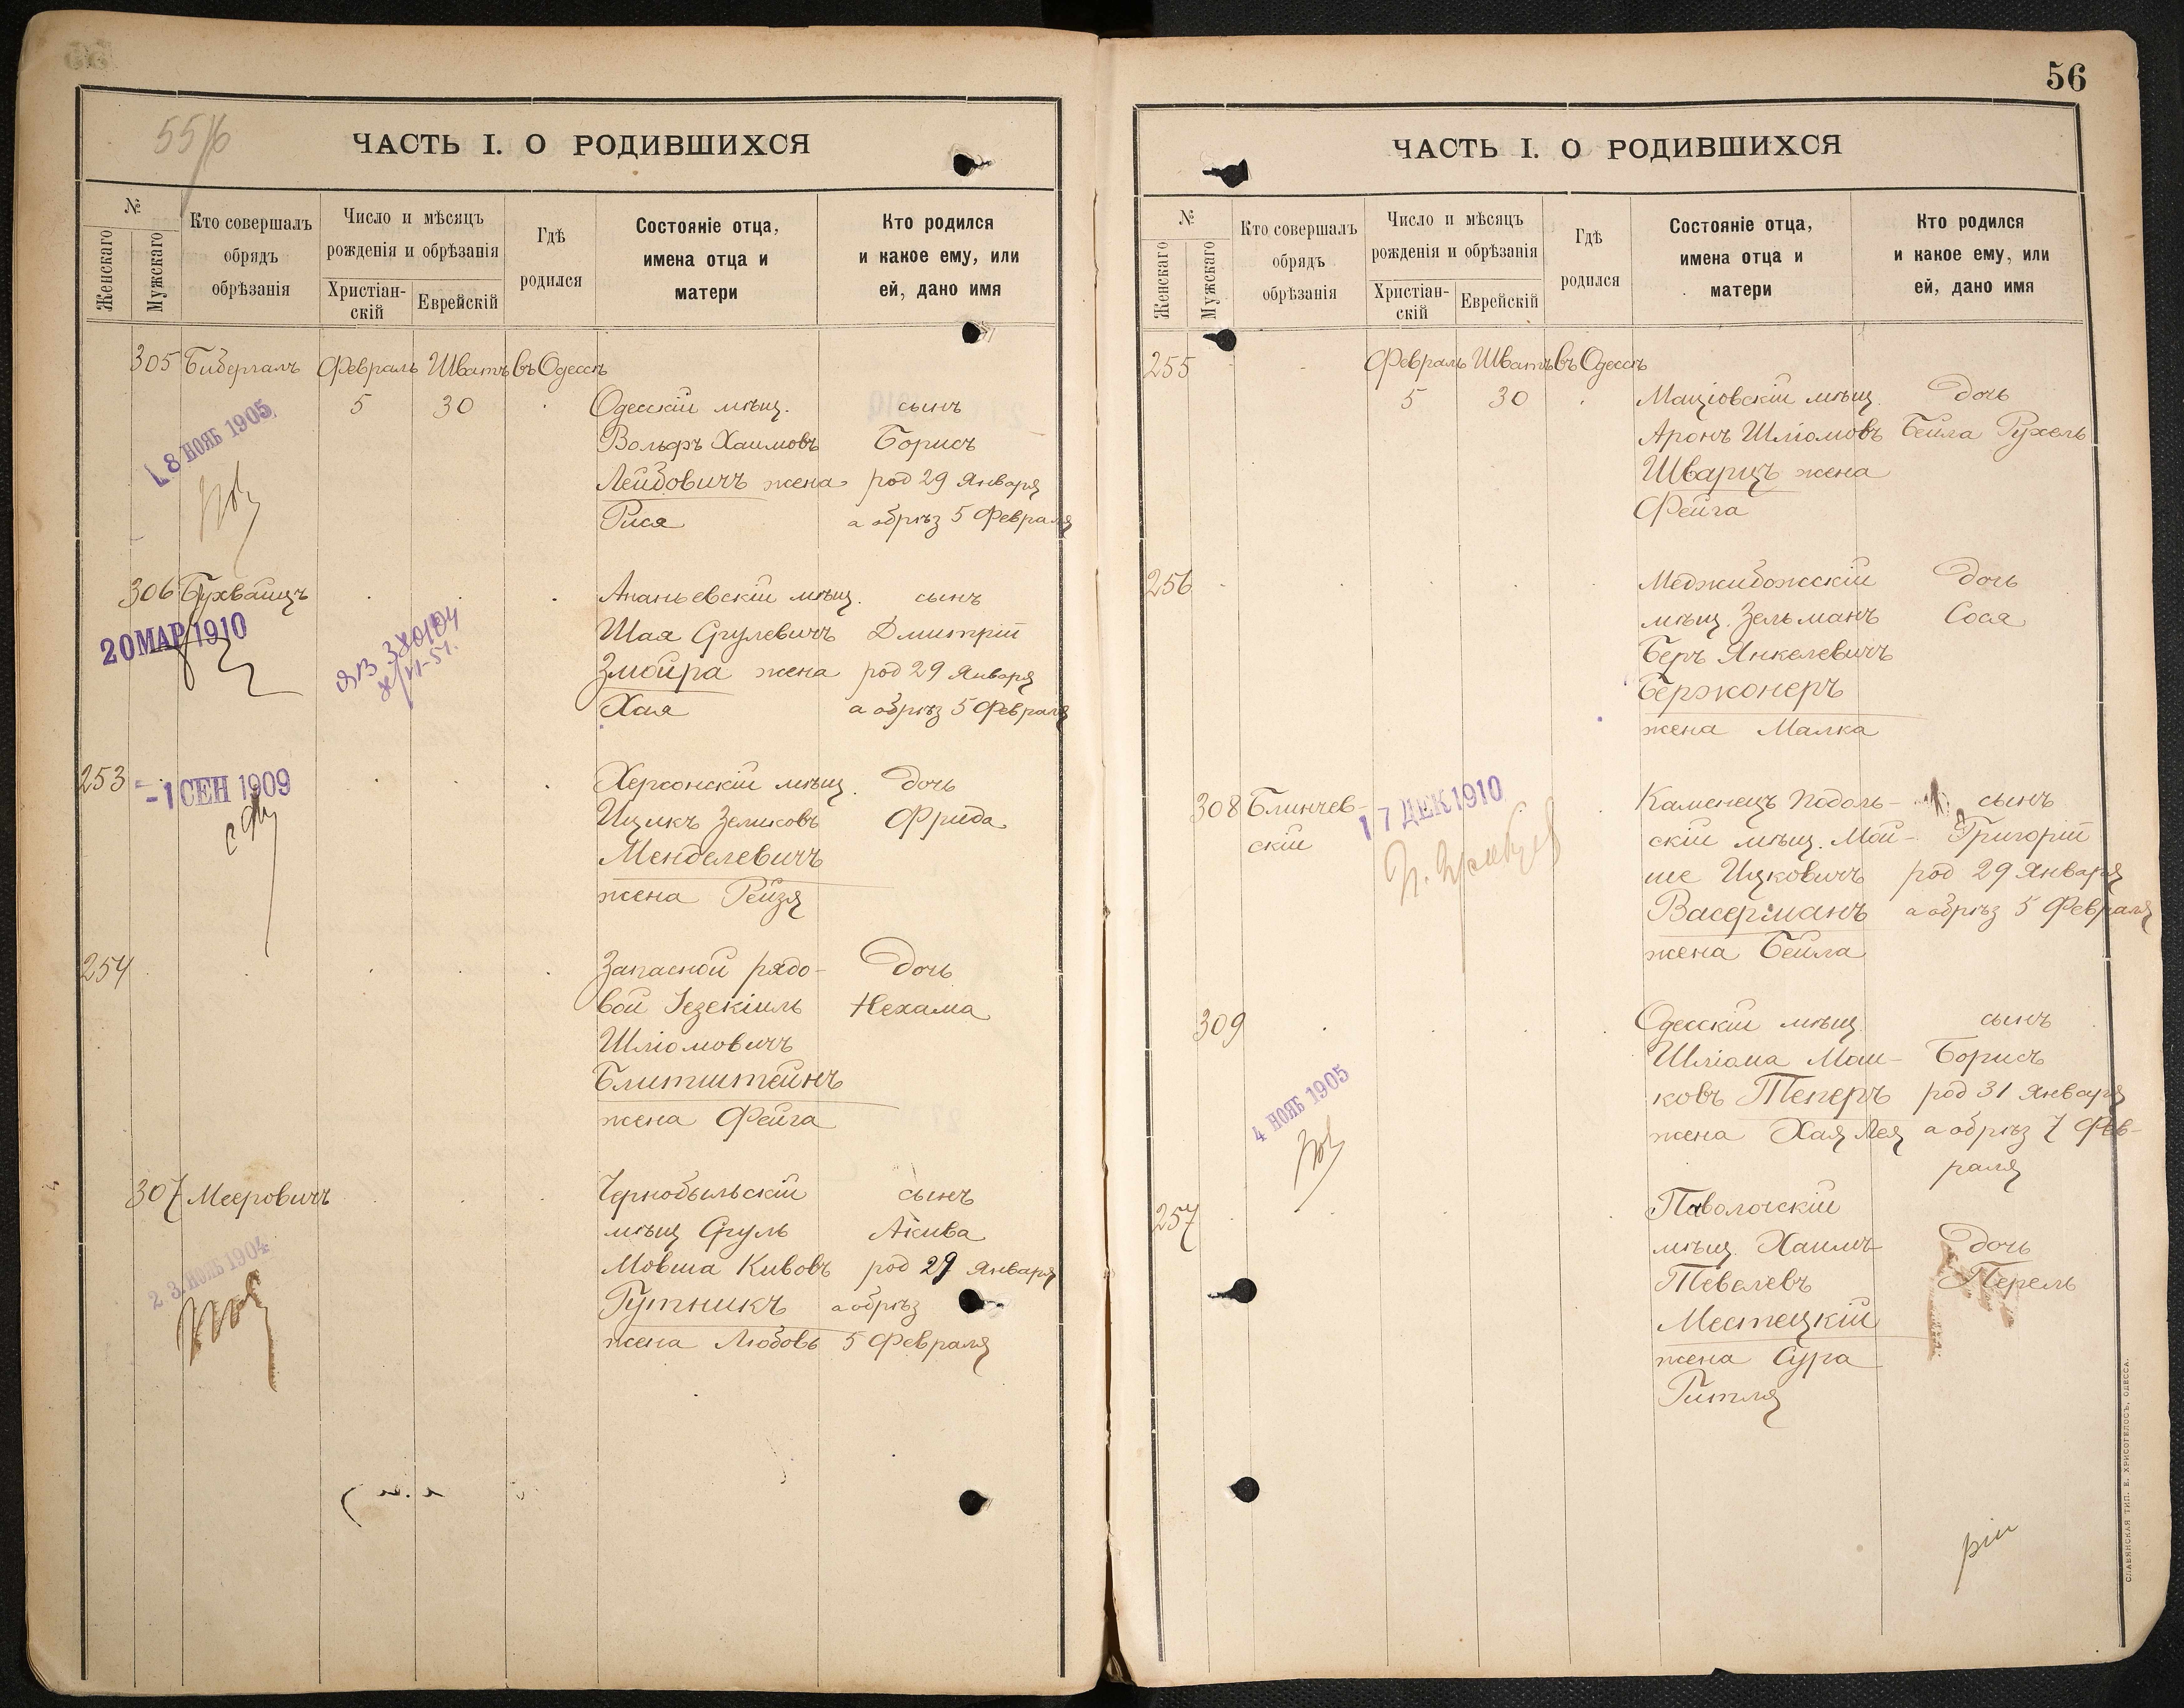 55/6
ЧАСТЬ I. О РОДИВШИХСЯ
№
Женскаго
Мужскаго
Кто совершалъ
обрядъ
обрѣзанія
Число и мѣсяцъ
рожденія и обрѣзанія
Христіан-
скій
Еврейскій
Гдѣ
родился
Состояніе отца,
имена отца и
матери
Кто родился
и какое ему, или
ей, дано имя
305 Бибергалъ Февраль Шватъ въ Одессѣ
5 30 Одесскій мѣщ. сынъ
Вольфъ Хаимовъ Борисъ
Лейбовичъ жена род 29 Января
Рися а обрѣз 5 Февраля
18 НОЯБ 1905
306 Бухвайцъ Ананьевскій мѣщ. сынъ
Шая Срулевичъ Дмитрій
Змойра жена род 29 Января
Хая а обрѣз 5 Февраля
20 МАР 1910
253 Херсонскій мѣщ. дочь
Ицикъ Зеликовъ Фрида
Менделевичъ
жена Рейзя
-1 СЕН 1909
254 Запасной рядо- дочь
вой Іезекіиль Нехама
Шліомовичъ
Блитштейнъ
жена Фейга
307 Мееровичъ Чернобыльскій сынъ
мѣщ Сруль Акива
Мовша Кивовъ род 29 Января
Гутникъ а обрѣз
жена Любовь 5 Февраля
23 НОЯБ 1904
56
ЧАСТЬ I. О РОДИВШИХСЯ
№
Женскаго
Мужскаго
Кто совершалъ
обрядъ
обрѣзанія
Число и мѣсяцъ
рожденія и обрѣзанія
Христіан-
скій
Еврейскій
Гдѣ
родился
Состояніе отца,
имена отца и
матери
Кто родился
и какое ему, или
ей, дано имя
255 Февраль Шватъ въ Одессѣ
5 30 Маціовскій мѣщ. дочь
Аронъ Шліомовъ Бейла Рухель
Шварцъ жена
Фейга
256 Меджибожскій дочь
мѣщ. Зельманъ Сося
Беръ Янкелевичъ
Бержонеръ
жена Малка
308 Блинчев- Каменецъ Подоль- сынъ
скій скій мѣщ. Мой- Григорій
ше Ицковичъ род 29 Января
Васерманъ а обрѣз 5 Февраля
жена Бейла
17 ДЕК 1910
309 Одесскій мѣщ. сынъ
Шліома Мош- Борисъ
ковъ Теперъ род 31 Января
жена Хая Лея а обрѣз 7 Фев-
раля
4 НОЯБ 1905
257 Паволочскій
мѣщ. Хаимъ дочь
Тевелевъ Перель
Местецкій
жена Сура
Гитля
СЛАВЯНСКАЯ ТИП. Е. ХРИСОГЕЛОСЪ, ОДЕССА.